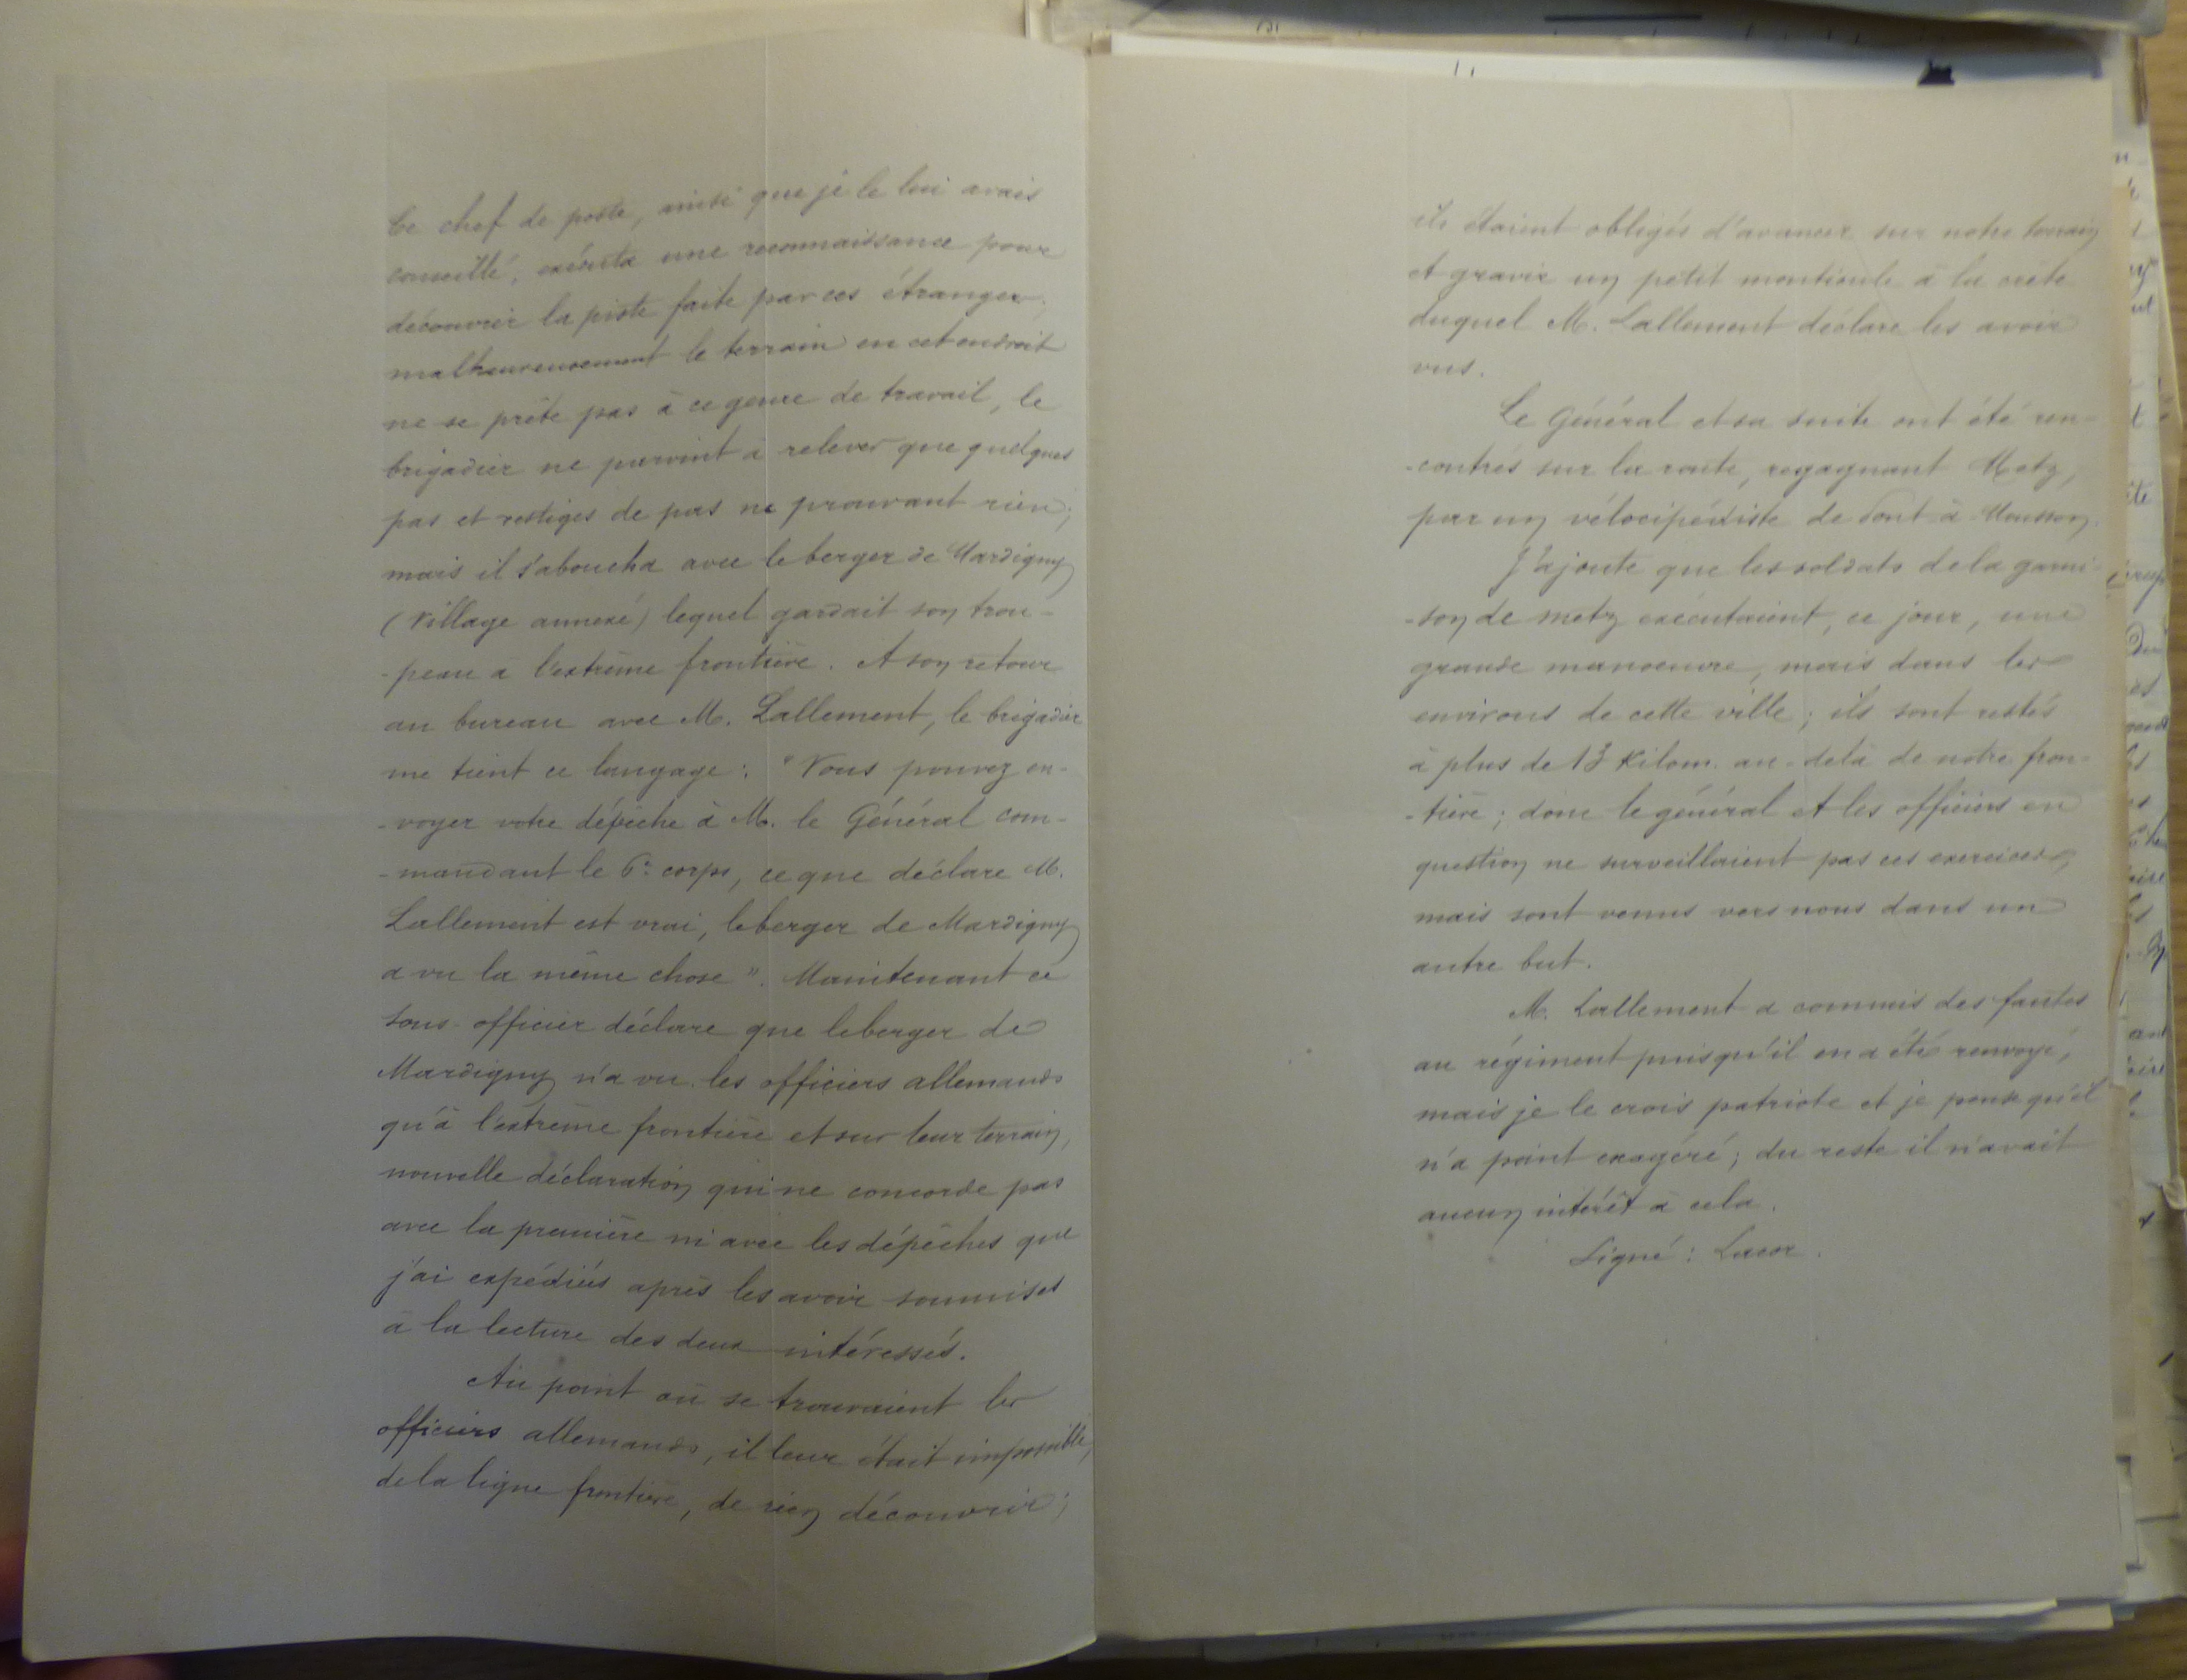 Ce chef de poste, ainsi que je le lui avais
conseillé, exécuta une reconnaissance pour
découvrir la piste faite par ces étrangers;
malheureusement le terrain en cet endroit
ne se prête pas à ce genre de travail, le
brigadier ne parvint à relever que quelques
pas et vestiges de pas ne prouvant rien;
mais il s'aboucha avec le berger de Mardigny
(village annexé) lequel gardait son trou-
-peau à l'extrême frontière. A son retour
au bureau avec M. Lallement, le brigadier
me tient ce langage: "Vous pouvez en-
-voyer votre dépêche à M. le Général com-
-mandant le 6e corps, ce que déclare M.
Lallement est vrai, le berger de Mardigny
a vu la même chose". Maintenant ce
sous-officier déclare que le berger de
Mardigny n'a vu les officiers allemands
qu'à l'extrême frontière et sur leur terrain,
nouvelle déclaration qui ne concorde pas
avec la première ni avec les dépêches que
j'ai expédiées après les avoir soumises
à la lecture des deux intéressés.
Au point où se trouvaient les
officiers allemands, il leur était impossible,
de la ligne frontière, de rien découvrir;
ils étaient obligés d'avancer sur notre terrain
et gravir un petit monticule à la crête
duquel M. Lallement déclare les avoir
vus.
Le Général et sa suite ont été ren-
-contrés sur la route, regagnant Metz,
par un vélocipédiste de Pont-à-Mousson.
J'ajoute que les soldats de la garni-
-son de Metz exécutaient, ce jour, une
grande manoeuvre, mais dans les
environs de cette ville; ils sont restés
à plus de 13 kilom. au-delà de notre fron-
-tière; donc le général et les officiers en
question ne surveillaient pas ces exercices,
mais sont venus vers nous dans un
autre but.
M. Lallement a commis des fautes
au régiment puisqu'il en a été renvoyé,
mais je le crois patriote et je pense qu'il
n'a point exagéré; du reste il n'avait
aucun intérêt à cela.
Signé: